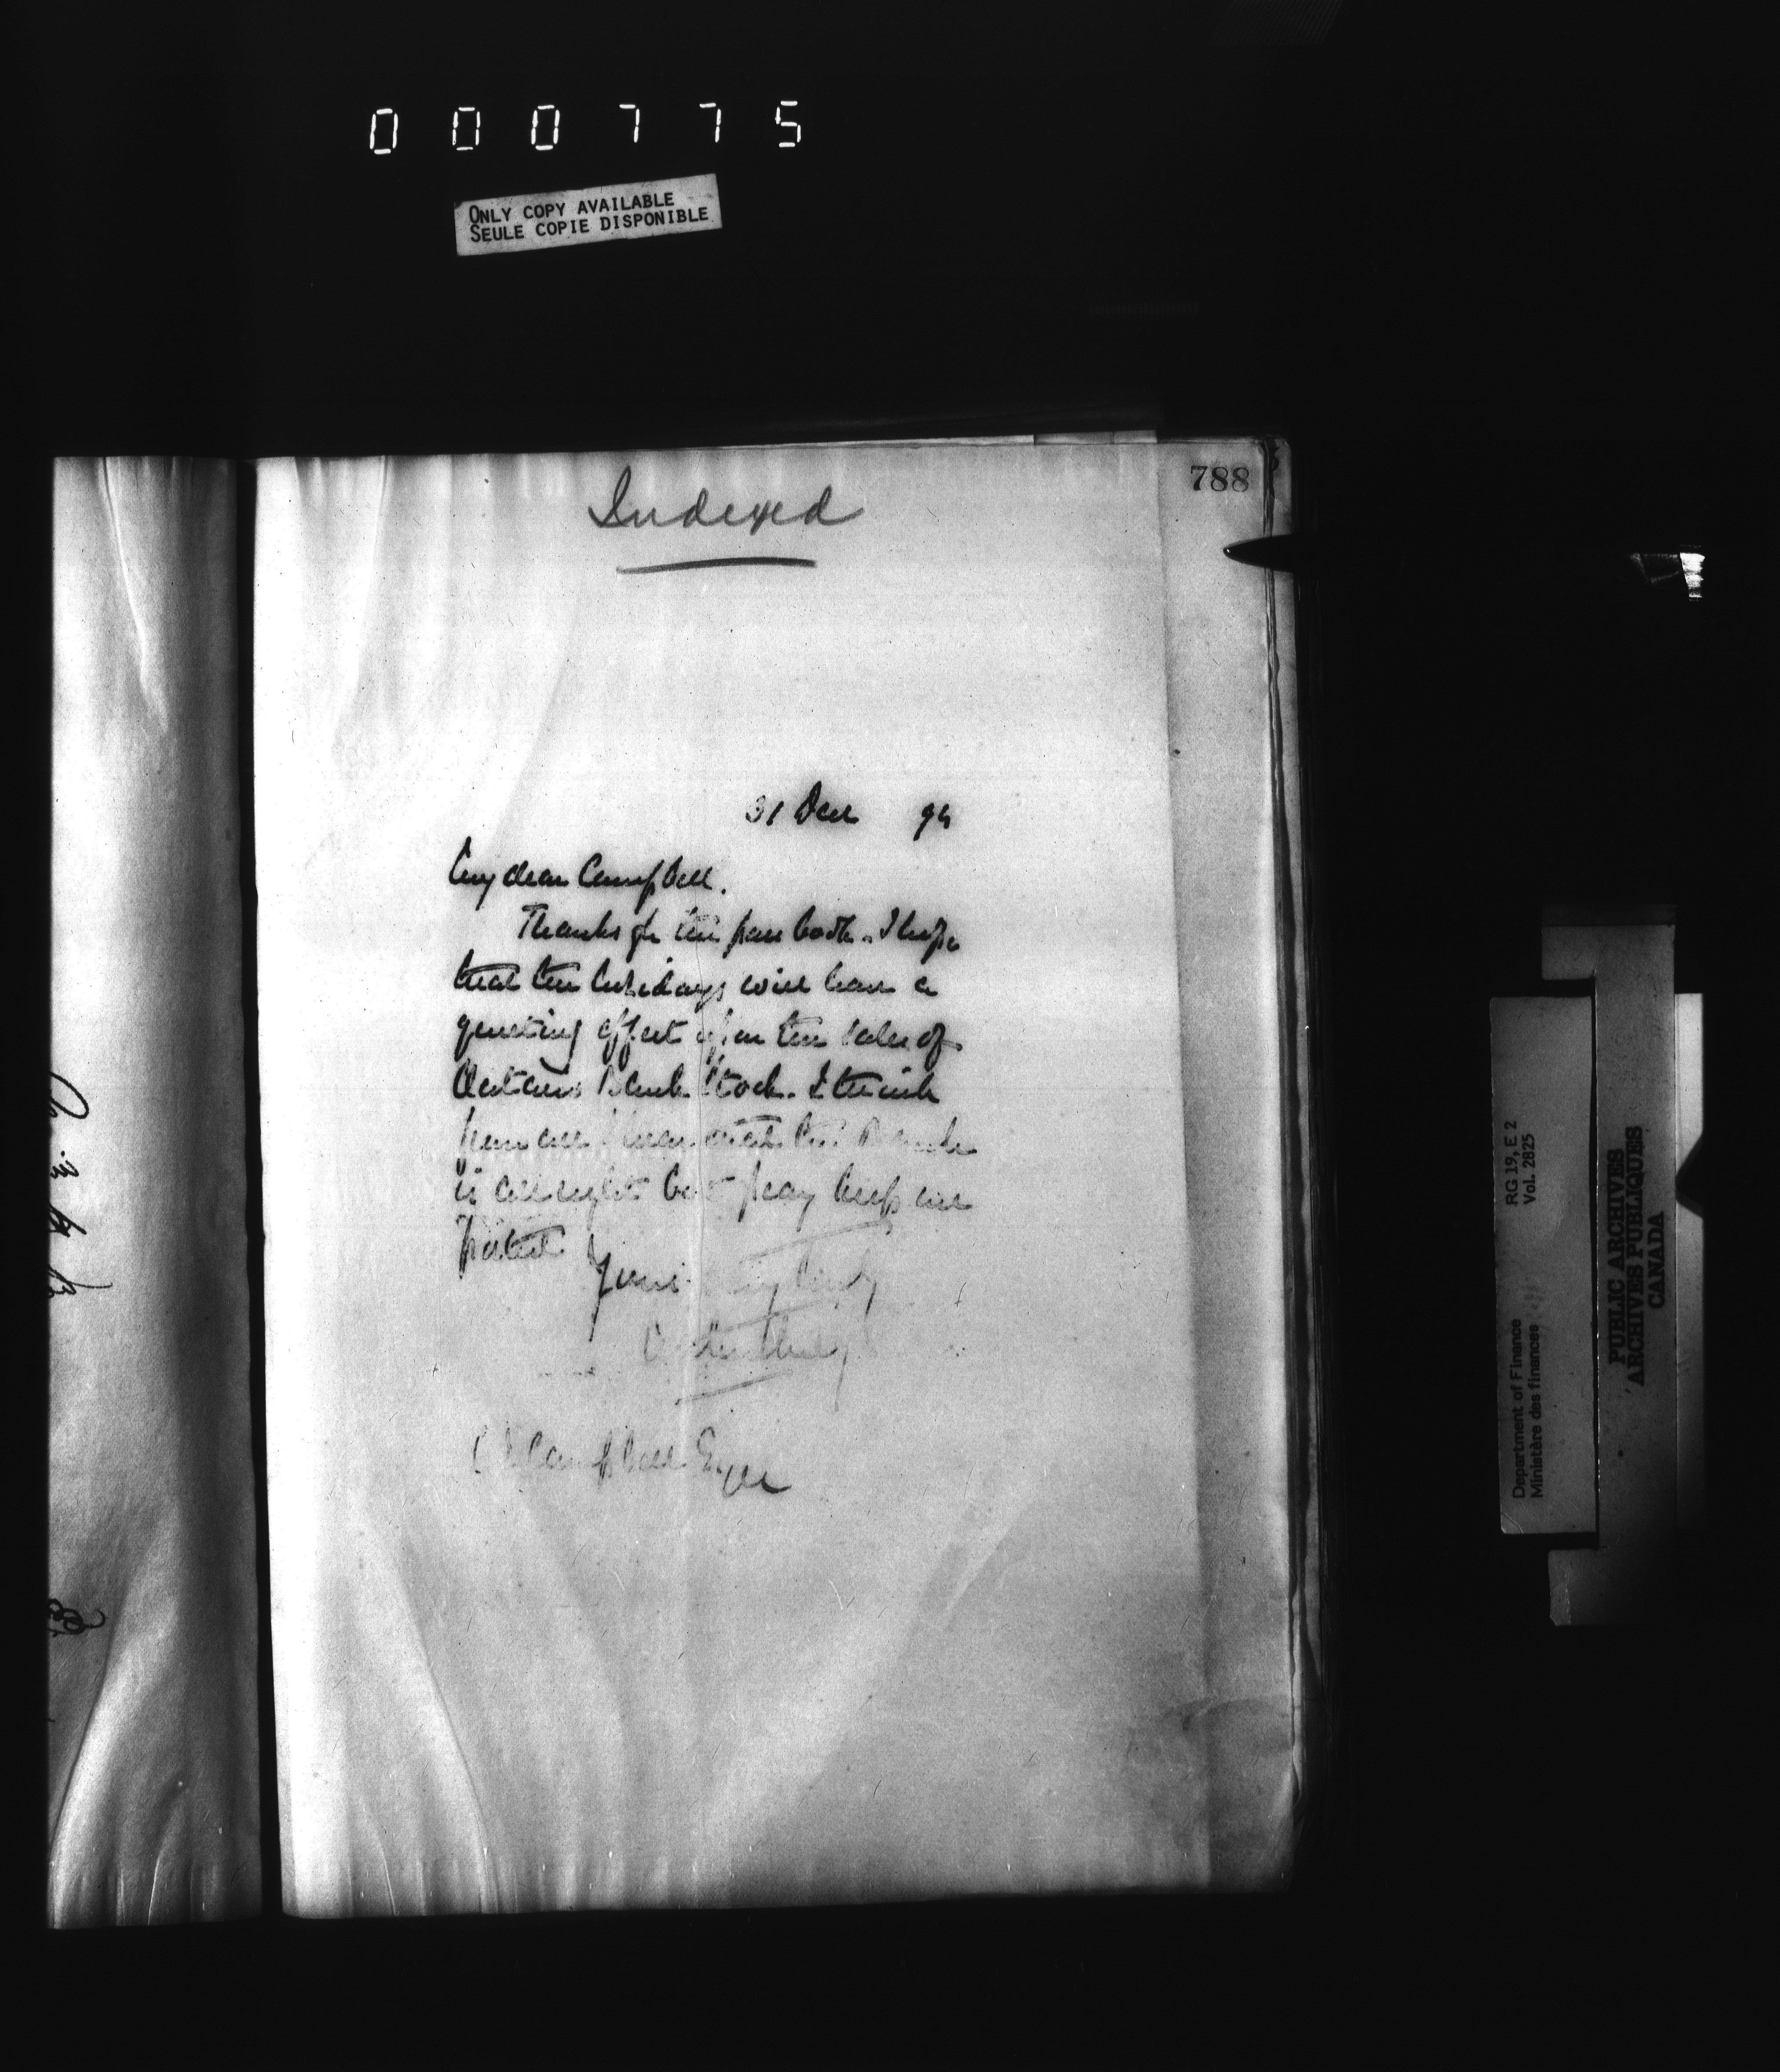 000775
ONLY COPY AVAILABLE
SEULE COPIE DISPONIBLE
788
Indexed
31 Dec 94
My dear Campbell.
Thanks for the pass book. I hope
that the holidays will have a
quieting effect upon the sales of
Ontario Bank Stock. I think
from all I hear that the Bank
is all right but pray keep me
posted
Yours
Campbell Esqre
RG 19, E 2
Vol. 2825
Department of Finance
Ministère des finances
PUBLIC ARCHIVES
ARCHIVES PUBLIQUES
CANADA